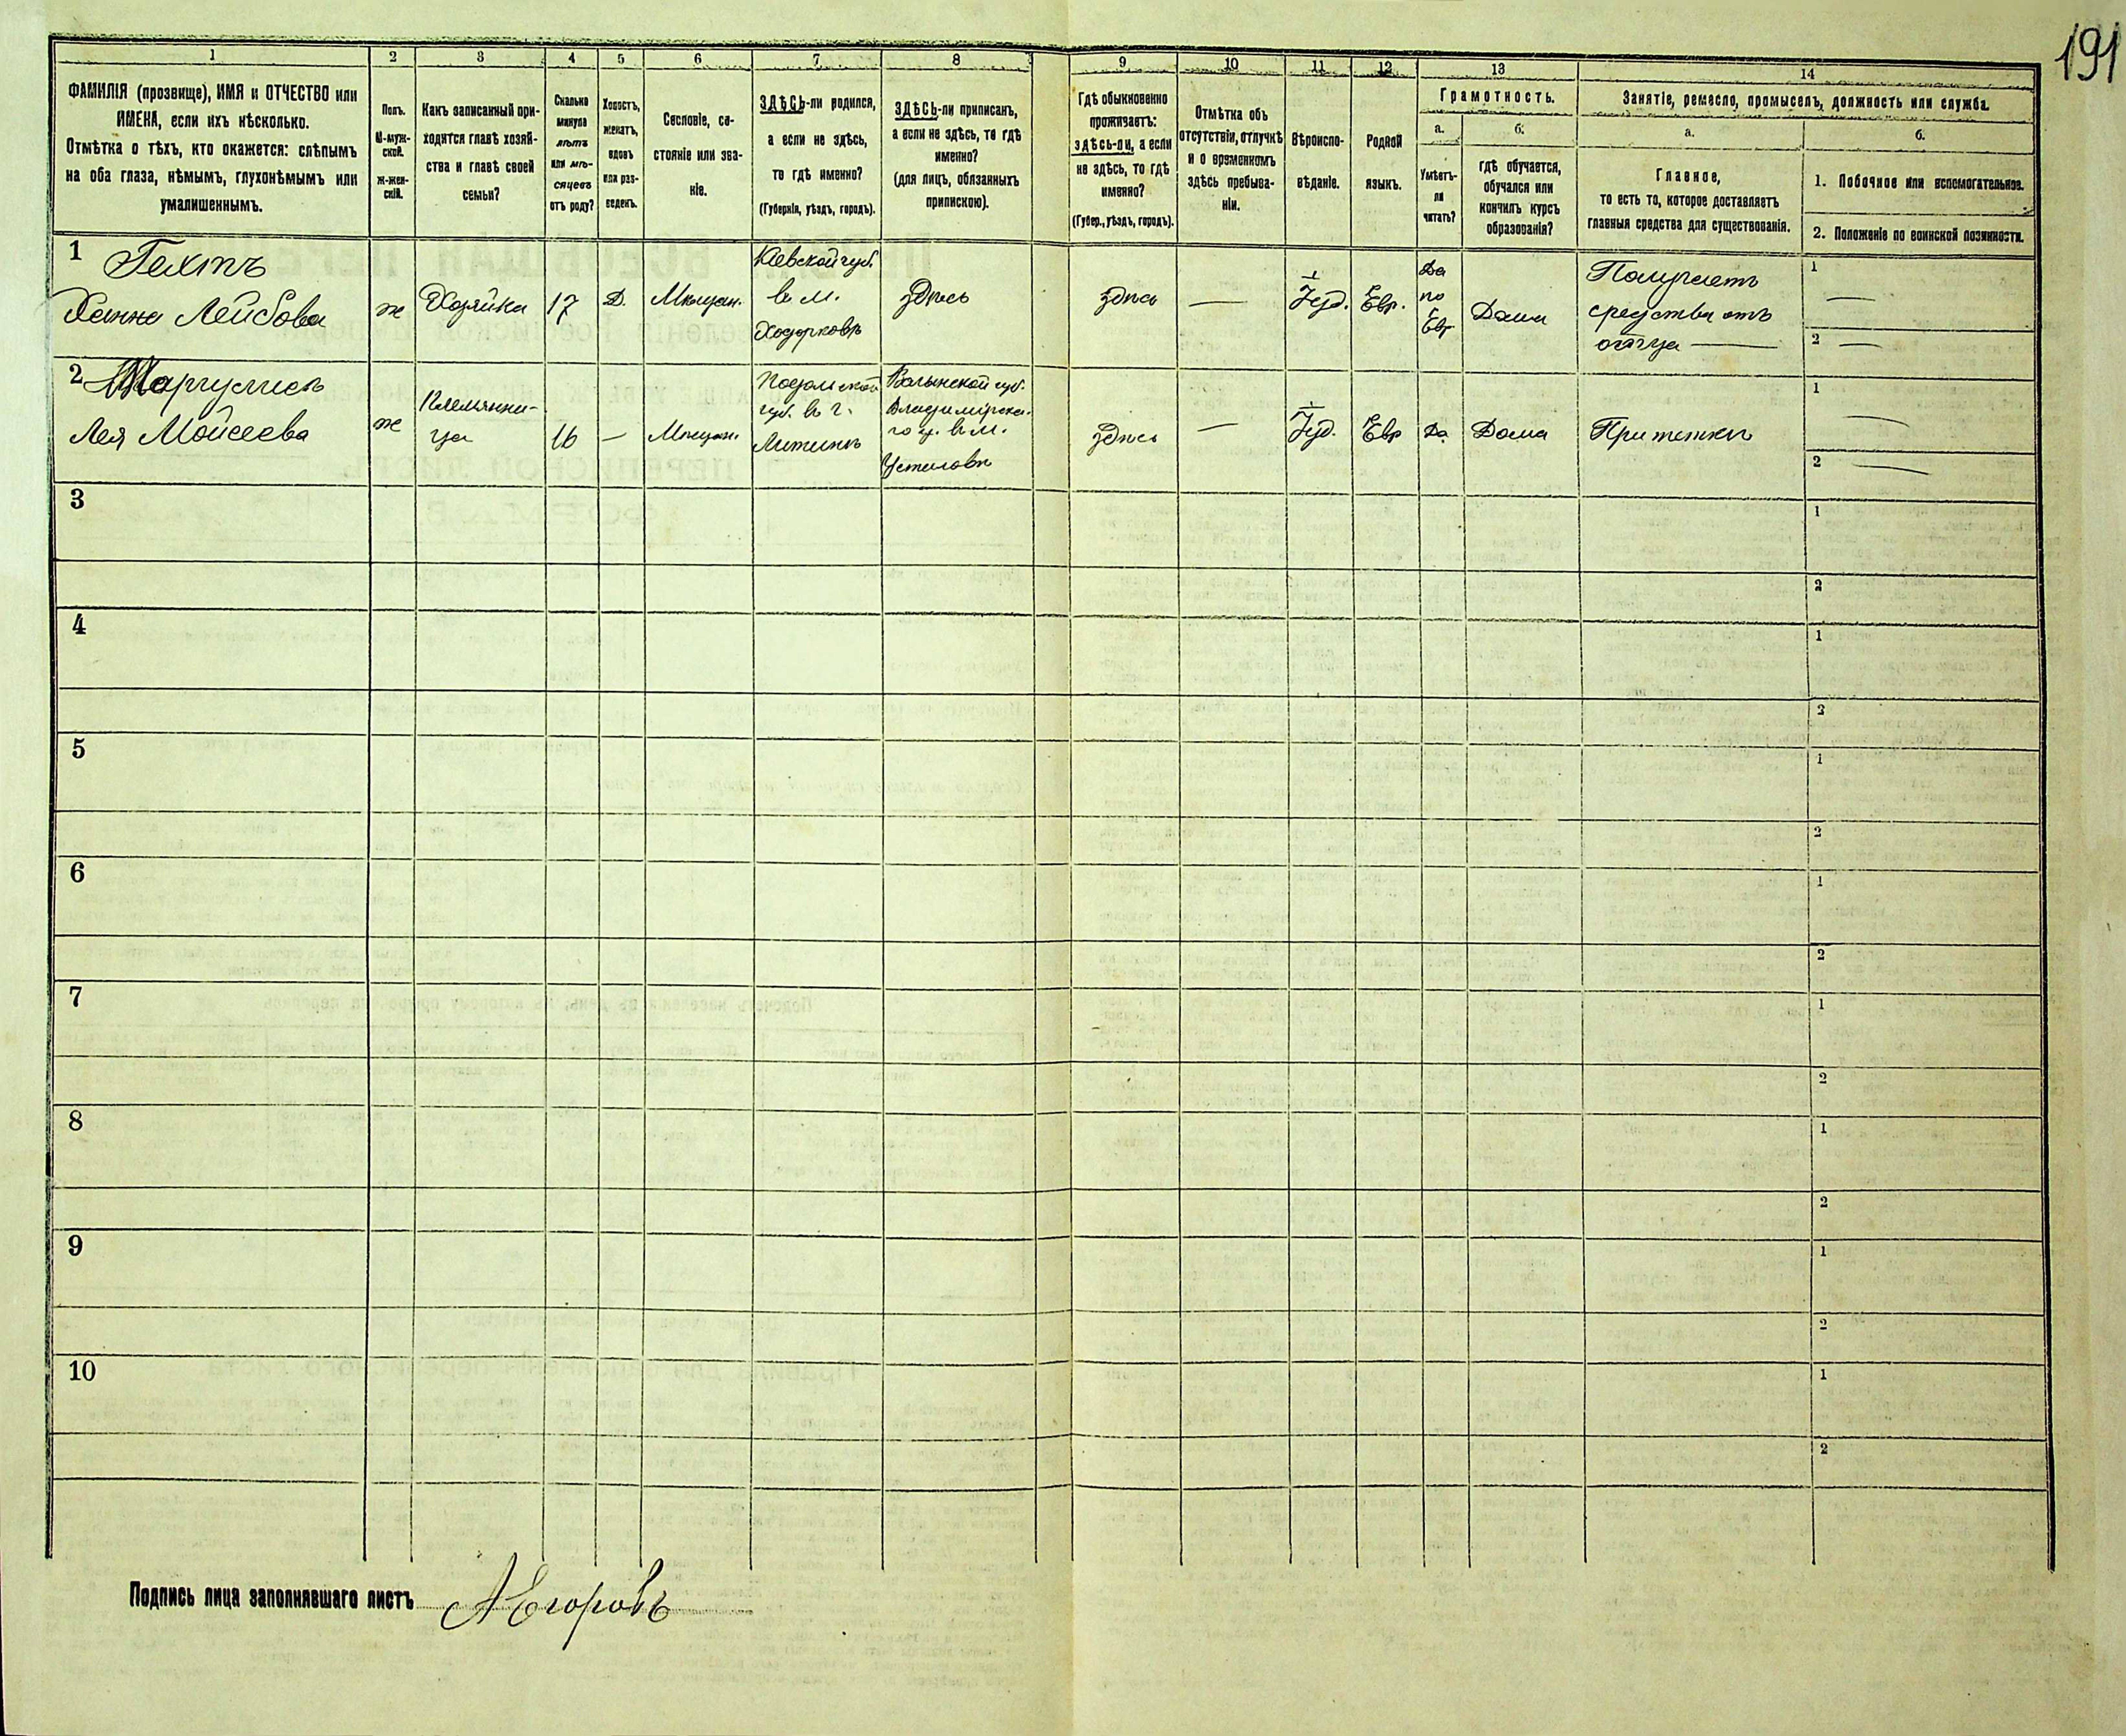 191
1 2 3 4 5 6 7 8 9 10 11 12 13 14
ФАМИЛІЯ (прозвище), ИМЯ и ОТЧЕСТВО или
ИМЕНА, если ихъ нѣсколько.
Отмѣтка о тѣхъ, кто окажется: слѣпымъ
на оба глаза, нѣмымъ, глухонѣмымъ или
умалишеннымъ.
Полъ.
М-муж-
ской.
ж-жен-
скій.
Какъ записанный при-
ходится главѣ хозяй-
ства и главѣ своей
семьи?
Сколько
минуло
лѣтъ
или мѣ-
сяцевъ
отъ роду?
Холостъ,
женатъ,
вдовъ
или раз-
веденъ.
Сословіе, со-
стояніе или зва-
ніе.
ЗДѢСЬ-ли родился,
а если не здѣсь,
то гдѣ именно?
(Губернія, уѣздъ, городъ).
ЗДѢСЬ-ли приписанъ,
а если не здѣсь, то гдѣ
именно?
(для лицъ, обязанныхъ
припискою).
Гдѣ обыкновенно
проживаетъ:
здѣсь-ли, а если
не здѣсь, то гдѣ
именно?
(Губер., уѣздъ, городъ).
Отмѣтка объ
отсутствіи, отлучкѣ
и о временномъ
здѣсь пребыва-
ніи.
Вѣроиспо-
вѣданіе.
Родной
языкъ.
Грамотность.
а.
Умѣетъ-
ли
читать?
б.
гдѣ обучается,
обучался или
кончилъ курсъ
образованія?
Занятіе, ремесло, промыселъ, должность или служба.
а.
Главное,
то есть то, которое доставляетъ
главныя средства для существованія.
б.
1. Побочное или вспомогательное.
2. Положеніе по воинской повинности.
1
Гехтъ
Ханна Лейбова
ж
Хозяйка
17
Д.
Мѣщан.
Кіевской губ.
в м.
Ходорковъ
здѣсь
здѣсь
—
Іуд.
Евр.
Да
по
Евр
Дома
Получаетъ
средства отъ
отца —
1 —
2 —
2
Маргулисъ
Лея Мойсеева
ж
Племянни-
ца
16
—
Мѣщан.
Подольской
губ. в г.
Литинѣ
Волынской губ.
Владимірска-
го у. в м.
Устиловѣ
здѣсь
—
Іуд.
Евр
Да
Дома
При теткѣ
1 —
2 —
3
1
2
4
1
2
5
1
2
6
1
2
7
1
2
8
1
2
9
1
2
10
1
2
Подпись лица заполнявшаго листъ АЕгоровъ